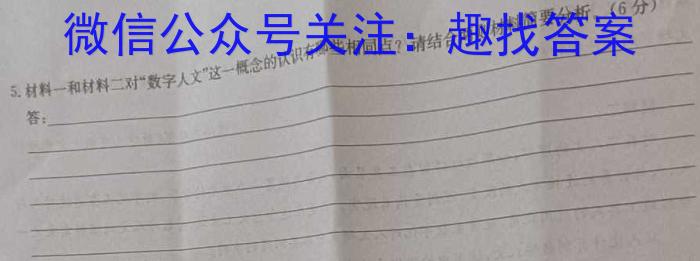 微信公众号关注：趣找答案
5.材料一和材料二对“数字人文”这一概念的认识有哪些相同点？请结合材料简要分析。（6分）
答：